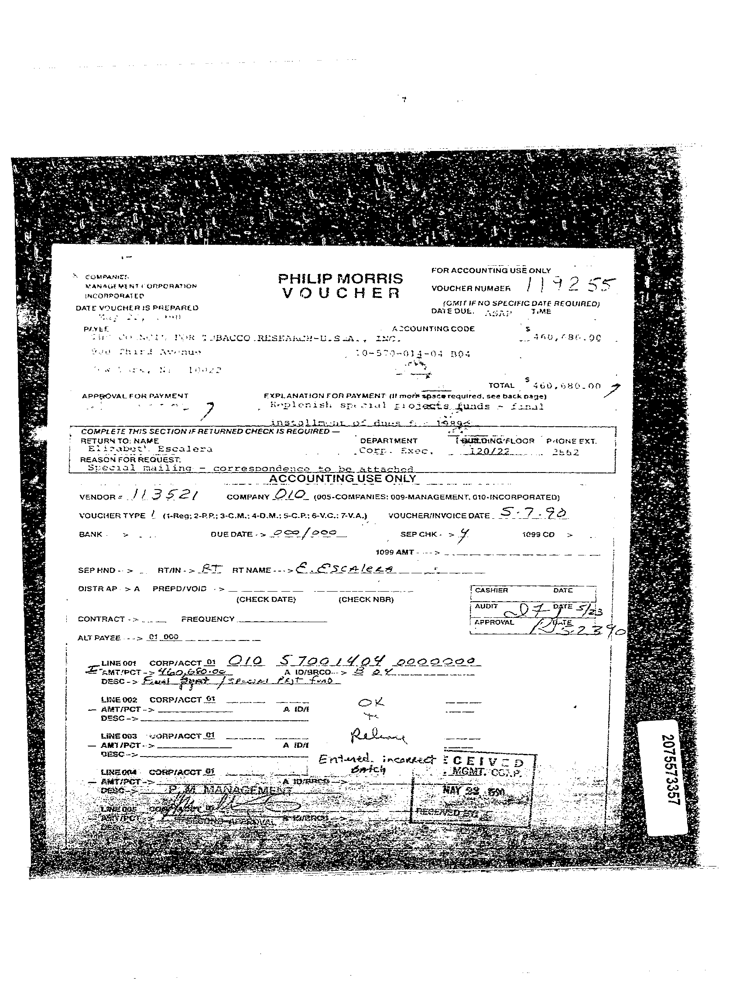 COMPANIES
MANAGEMENT CORPORATION
INCORPORATED
PHILIP MORRIS
VOUCHER
FOR ACCOUNTING USE ONLY
VOUCHER NUMBER 119255
DATE VOUCHER IS PREPARED
(OMIT IF NO SPECIFIC DATE REQUIRED)
DATE DUE: ASAP TIME
PAYEE ACCOUNTING CODE $
The Council FOR TOBACCO RESEARCH-U.S.A., INC. 460,680.00
900 Third Avenue 10-570-014-04 B04
New York, NY 10022
TOTAL $ 460,680.00
APPROVAL FOR PAYMENT EXPLANATION FOR PAYMENT (If more space required, see back page)
Replenish special projects funds - final
installment of dues
COMPLETE THIS SECTION IF RETURNED CHECK IS REQUIRED —
RETURN TO: NAME DEPARTMENT BUILDING/FLOOR PHONE EXT.
Elizabeth Escalera Corp. Exec. 120/22 2662
REASON FOR REQUEST:
Special mailing - correspondence to be attached
ACCOUNTING USE ONLY
VENDOR # 113521 COMPANY 010 (005-COMPANIES: 009-MANAGEMENT, 010-INCORPORATED)
VOUCHER TYPE 1 (1-Reg; 2-P.P.; 3-C.M.; 4-D.M.; 5-C.P.; 6-V.C.; 7-V.A.) VOUCHER/INVOICE DATE 5-7-90
BANK -> DUE DATE -> 000/000 SEP CHK -> Y 1099 CD >
1099 AMT --->
SEP HND -> RT/IN -> RT RT NAME ---> E. ESCALERA
DISTR AP -> A PREPD/VOID ->
(CHECK DATE) (CHECK NBR)
CASHIER DATE
AUDIT DATE 5/23
APPROVAL DATE 52390
CONTRACT -> FREQUENCY
ALT PAYEE --> 01 000
LINE 001 CORP/ACCT 01 010 57001404 0000000
AMT/PCT -> 460,680.00 A ID/BRCD --> B 04
DESC -> Final Pymt / SPECIAL PRJT FUND
LINE 002 CORP/ACCT 01 OK
AMT/PCT -> A ID/
DESC ->
LINE 003 CORP/ACCT 01 Release
AMT/PCT -> A ID/
DESC ->
Entered incorrect
batch
LINE 004 CORP/ACCT 01
AMT/PCT -> A ID/BRCD
DESC -> P.M. MANAGEMENT
CEIVED
MGMT. CORP.
MAY 23 1990
RECEIVED BY
LINE 005 CORP/ACCT 01
AMT/PCT A ID/BRCD
DESC
2075573357